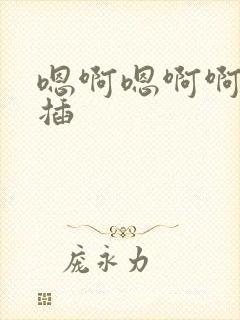 嗯啊嗯啊啊
插
庞永力